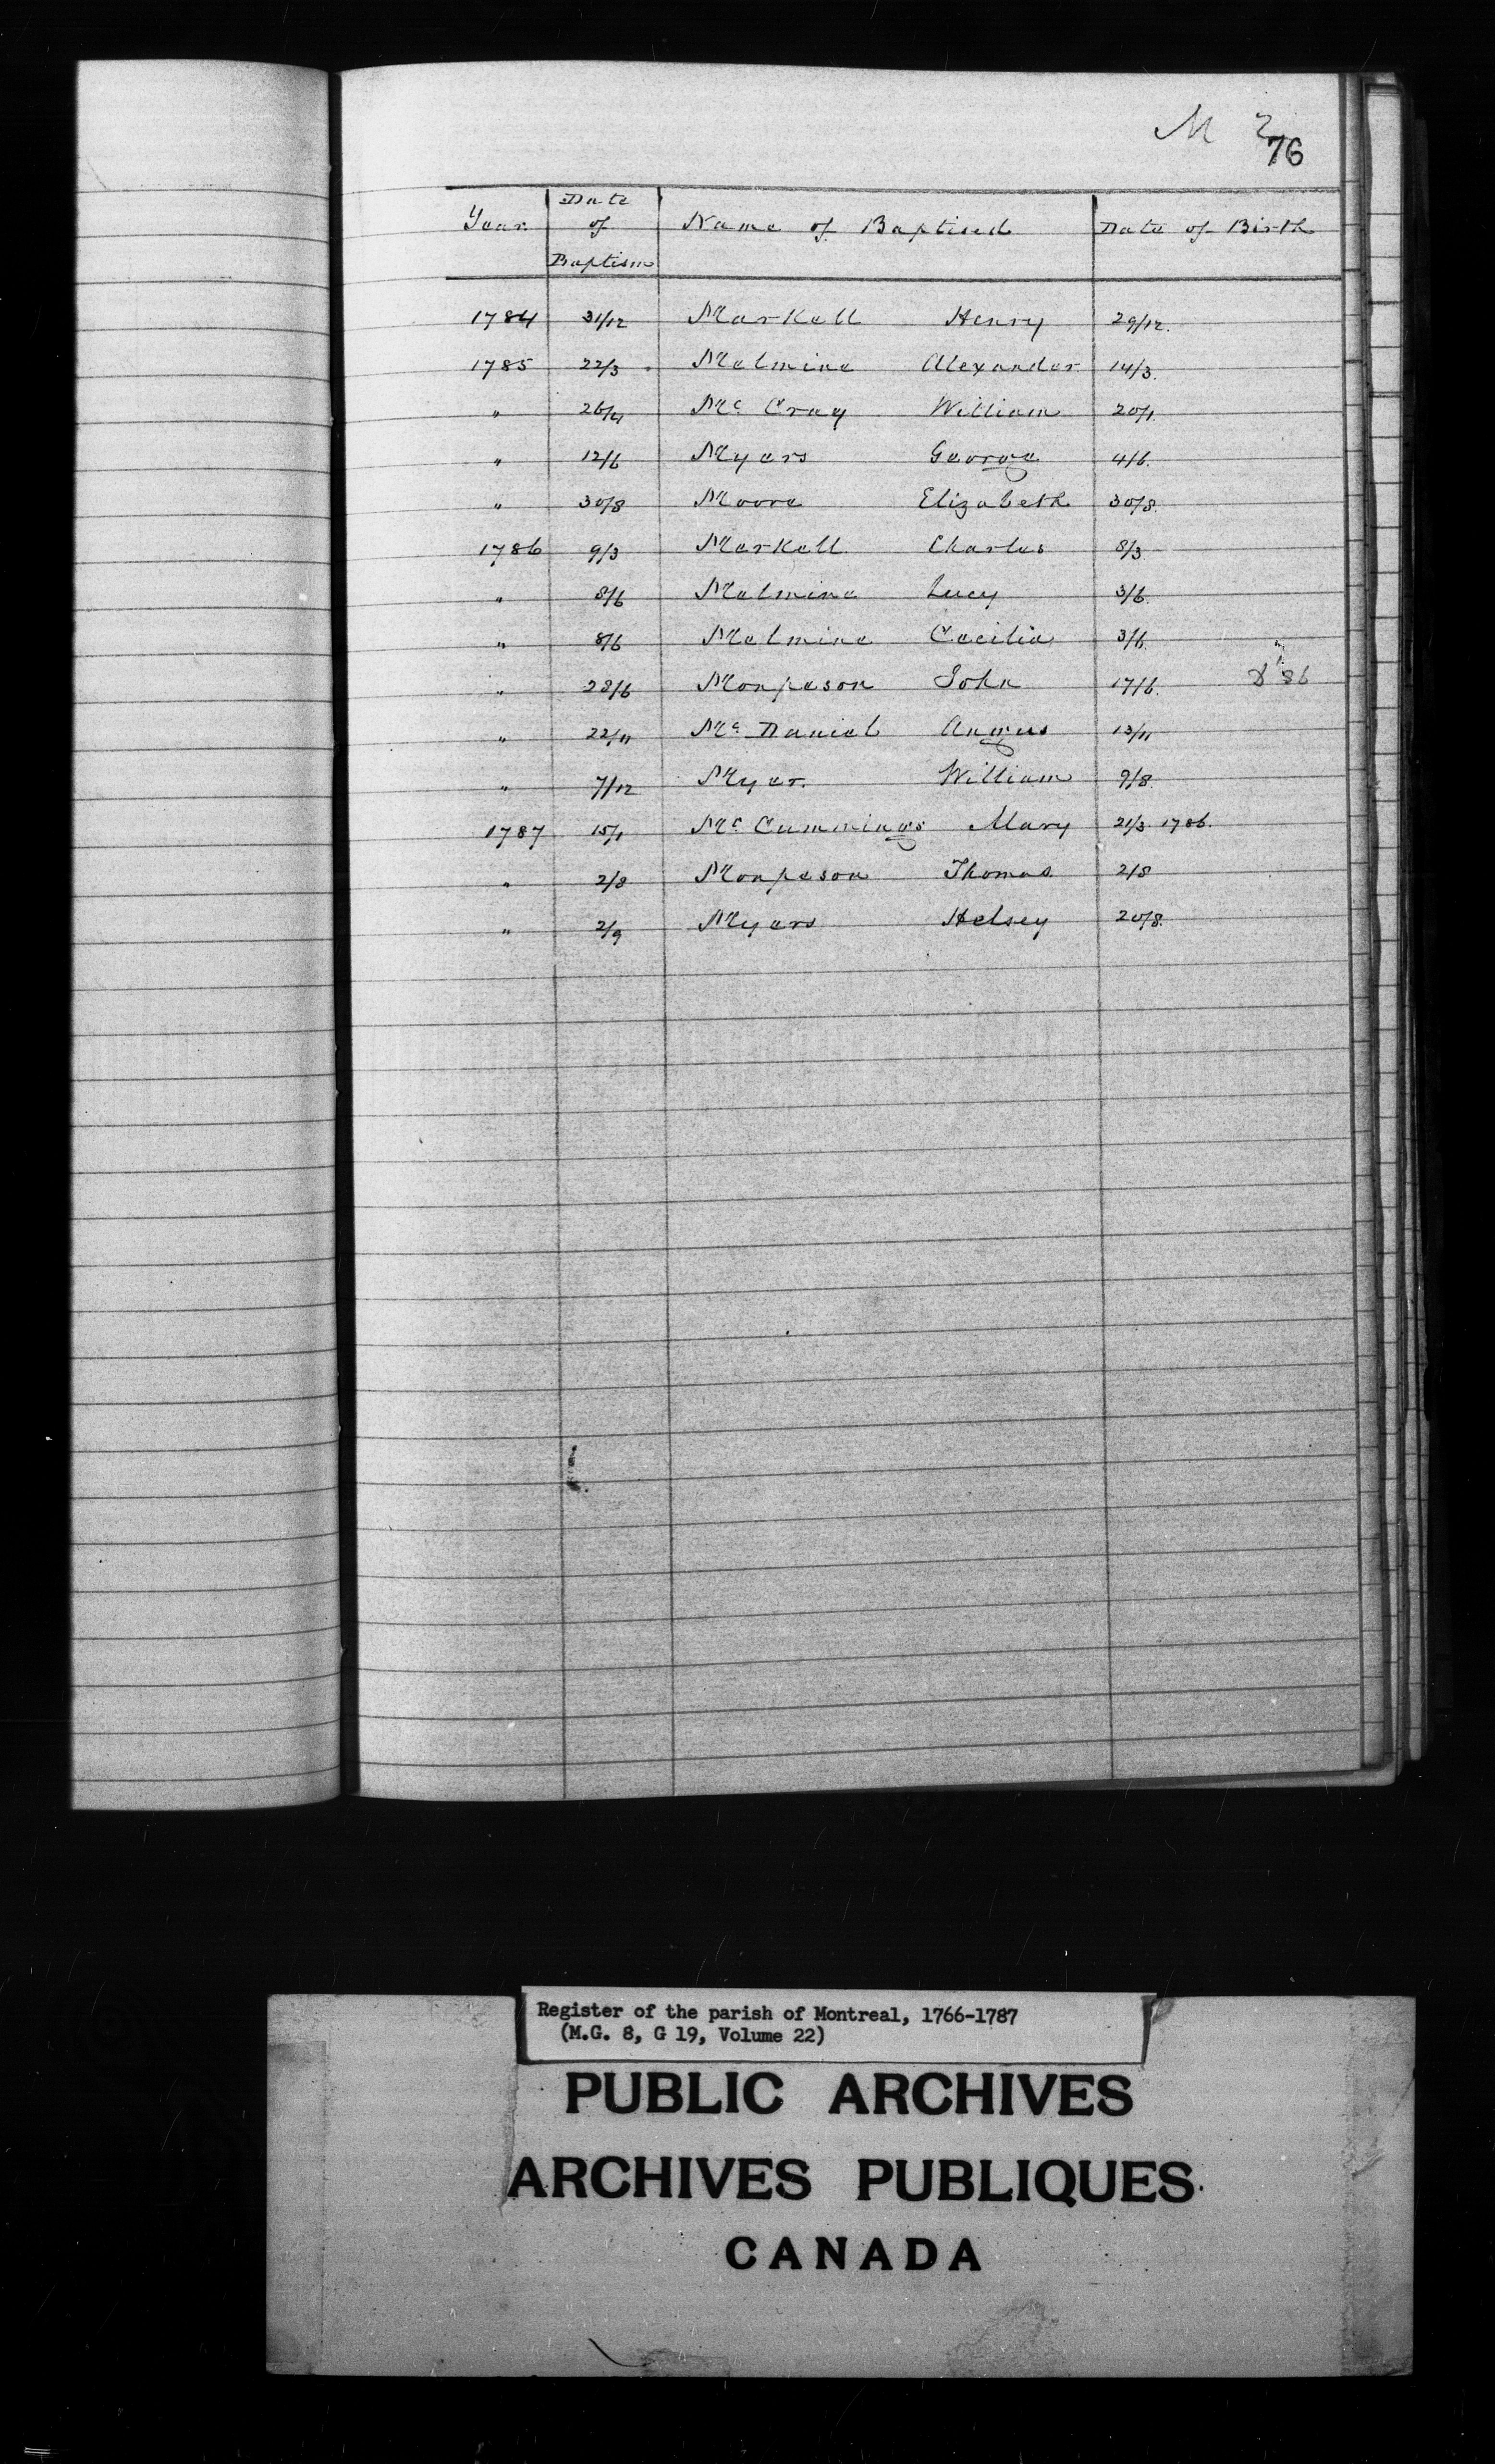 M 2
76
Year Date of Baptism Name of Baptised Date of Birth
1784 31/12 Markell Henry 29/12.
1785 22/3 Malmine Alexander 14/3.
" 26/4 Mc Cray William 20/1.
" 12/6 Myers George 4/6.
" 30/8 Moore Elizabeth 30/8.
1786 9/3 Markell Charles 8/3
" 8/6 Malmine Lucy 3/6.
" 8/6 Malmine Cecilia 3/6.
" 28/6 Monpeson John 17/6.
" 22/11 Mc Daniel Angus 13/11
" 7/12 Myer. William 9/8.
1787 15/1 Mc Cummings Mary 21/3 1786.
" 2/8 Monpeson Thomas 2/8
" 2/9 Myers Helsey 20/8.
Register of the parish of Montreal, 1766-1787
(M.G. 8, G 19, Volume 22)
PUBLIC ARCHIVES
ARCHIVES PUBLIQUES
CANADA